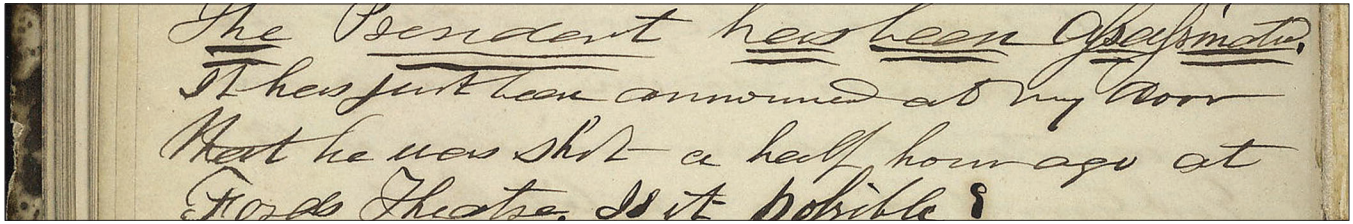 The President has been assassinated.
It has just been announced at my door
that he was shot a half hour ago at
Fords Theatre. Is it possible?